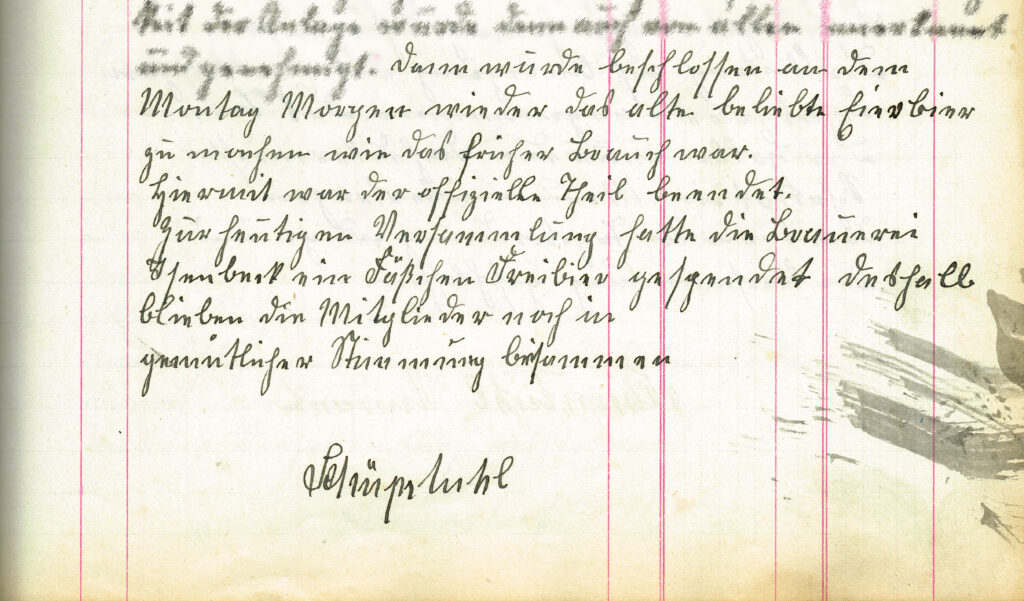 Mit der Anlage wurde auch von allen anerkannt
und genehmigt. Dann wurde beschlossen an dem
Montag Morgen wieder das alte beliebte Eierbier
zu machen wie das früher Brauch war.
Hiermit war der offizielle Theil beendet.
Zur heutigen Versammlung hatte die Brauerei
Isenbeck ein Fäßchen Freibier gespendet deshalb
blieben die Mitglieder noch in
gemütlicher Stimmung beisammen